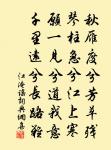 秋雁度兮芳草残
琴柱急兮江上寒
愿一见兮道我意
千里远兮长路难